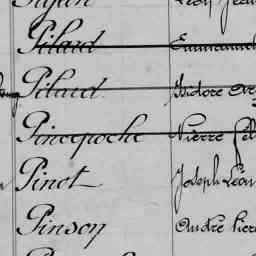 Pilard Emmanuel
Pilard Isidore
Pincepoche Pierre
Pinot Joseph Léon
Pinson André Pierre